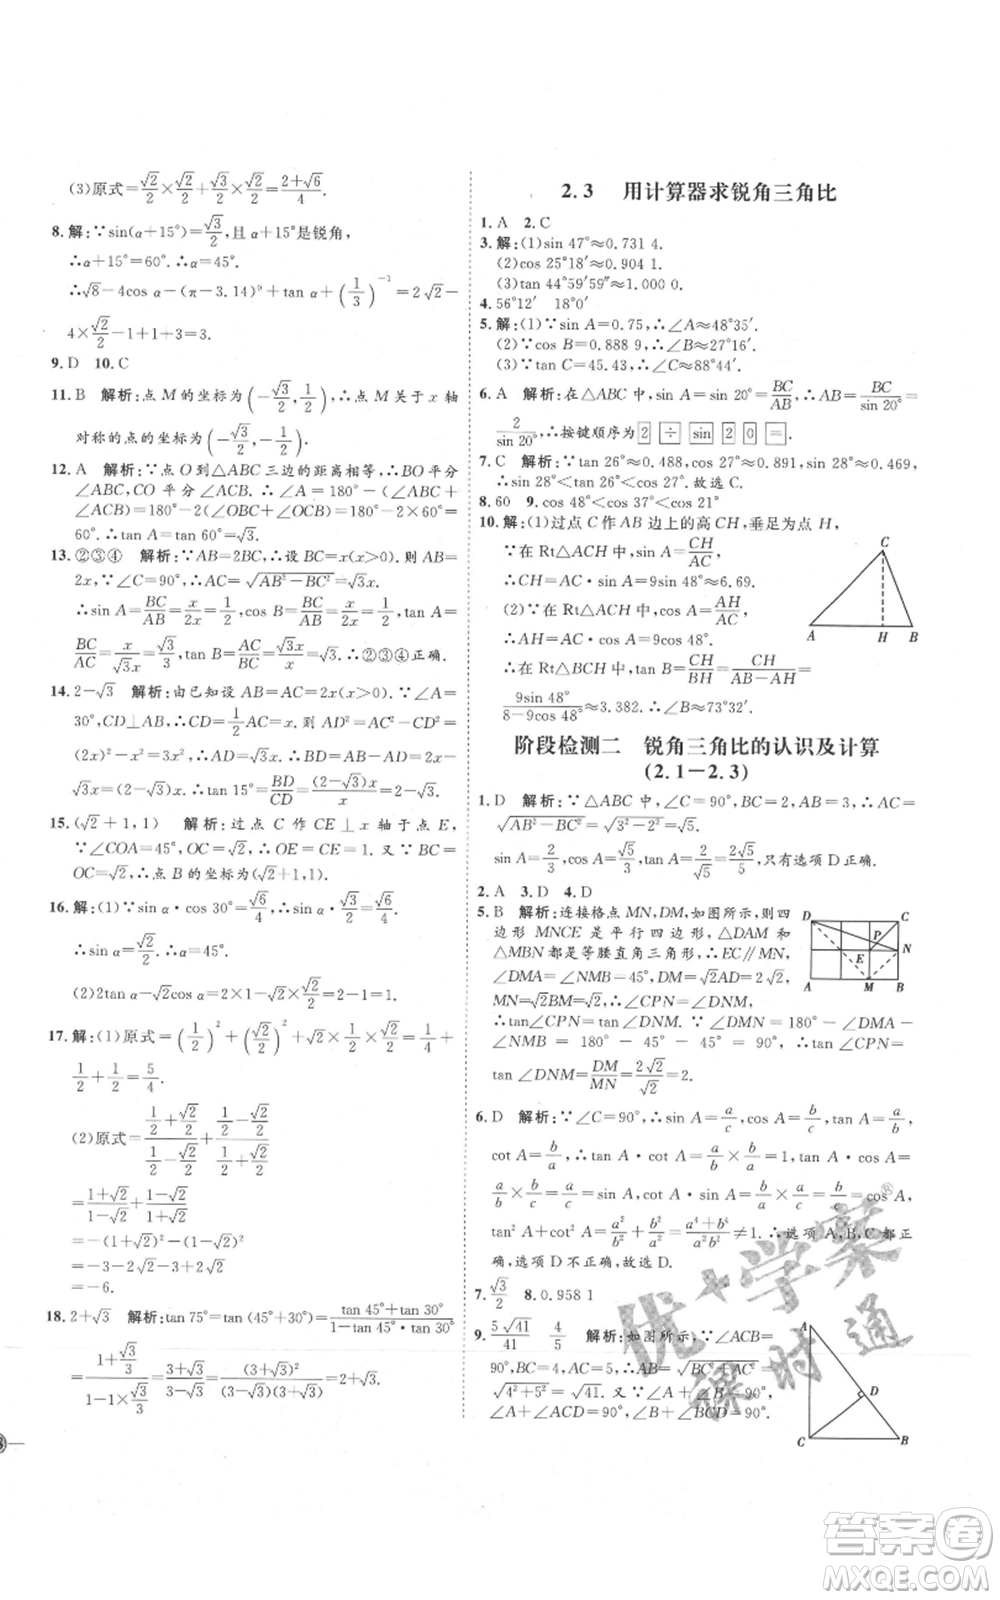 (3)原式=√2/2×√2/2+√3/2×√2/2=(2+√6)/4.
8. 解:∵sin(α+15°)=√3/2,且α+15°是锐角,
∴α+15°=60°.∴α=45°.
∴√8-4cos α-(π-3.14)⁰+tan α+(1/3)⁻¹=2√2-
4×√2/2-1+1+3=3.
9. D 10. C
11. B 解析:∵点 M 的坐标为(-√3/2,1/2),∴点 M 关于 x 轴
对称的点的坐标为(-√3/2,-1/2).
12. A 解析:∵点 O 到△ABC 三边的距离相等,∴BO 平分
∠ABC,CO 平分∠ACB.∴∠A=180°-(∠ABC+
∠ACB)=180°-2(∠OBC+∠OCB)=180°-2×
(180°-∠BOC)=60°.∴tan A=tan 60°=√3.
13. ②③④ 解析:∵AB=2BC,∴设 BC=x(x>0).则 AB=
2x,∵∠C=90°,∴AC=√(AB²-BC²)=√3x.
∴sin A=BC/AB=x/2x=1/2,cos B=BC/AB=x/2x=1/2,tan A=
BC/AC=x/√3x=√3/3,tan B=AC/BC=√3x/x=√3.∴②③④正确.
14. 2-√3 解析:由已知设 AB=AC=2x(x>0).∵∠A=30°,
CD⊥AB,∴CD=1/2AC=x.则 AD²=AC²-CD²=
(2x)²-x²=3x².∴AD=√3x.∴BD=AB-AD=2x-
√3x=(2-√3)x.∴tan 15°=BD/CD=(2-√3)x/x=2-√3.
15. (√2+1,1) 解析:过点 C 作 CE⊥x 轴于点 E,
∵∠COA=45°,OC=√2,∴OE=CE=1.又∵BC=
OC=√2,∴点 B 的坐标为(√2+1,1).
16. 解:(1)∵sin α·cos 30°=√6/4,∴√3/2sin α=√6/4.
∴sin α=√2/2.∴α=45°.
(2)2tan α-√2cos α=2×1-√2×√2/2=2-1=1.
17. 解:(1)原式=(1/2)²+(√2/2)²+√2×1/2×√2/2=1/4+
1/2+1/2=5/4.
(2)原式=(1/2+√2/2)/(1/2-√2/2)+(1/2+√2/2)/(1/2-√2/2)
=(1+√2)/(1-√2)+(1+√2)/(1-√2)
=-(1+√2)²-(1+√2)²
=-3-2√2-3-2√2
=-6.
18. 2+√3 解析:tan75°=tan(45°+30°)=(tan 45°+tan 30°)/(1-tan 45°·tan 30°)
=(1+√3/3)/(1-1×√3/3)=(3+√3)/(3-√3)=(3+√3)²/((3-√3)(3+√3))=2+√3.
2.3 用计算器求锐角三角比
1. A 2. C
3. 解:(1)sin 47°≈0.731 4.
(2)cos 25°18′≈0.904 1.
(3)tan 44°59′59″≈1.000 0.
4. 56°12′ 18°0′
5. 解:(1)∵sin A=0.75,∴∠A≈48°35′.
(2)∵cos B=0.888 9,∴∠B≈27°16′.
(3)∵tan C=45.43,∴∠C≈88°44′.
6. A 解析:∵在△ABC 中,sin A=sin 20°=BC/AB,∴AB=BC/sin 20°=
2/sin 20°.∴按键顺序为 2 ÷ sin 2 0 =.
7. C 解析:∵tan 26°≈0.488,cos 27°≈0.891,sin 28°≈
0.469,∴sin 28°<tan 26°<cos 27°.故选 C.
8. 60 9. cos 48°<cos 37°<cos 21°
10. 解:(1)过点 C 作 AB 边上的高 CH,垂足为点 H,
∵在 Rt△ACH 中,sin A=CH/AC,
∴CH=AC·sin A=9sin 48°≈6.69.
(2)∵在 Rt△ACH 中,cos A=AH/AC,
∴AH=AC·cos A=9cos 48°.
∴在 Rt△BCH 中,tan B=CH/BH=CH/(AB-AH)=
9sin 48°/(8-9cos 48°)≈3.382.∴∠B≈73°32′.
C
A H B
阶段检测二 锐角三角比的认识及计算
(2.1-2.3)
1. D 解析:∵△ABC 中,∠C=90°,BC=2,AB=3,∴AC=
√(AB²-BC²)=√(3²-2²)=√5.
sin A=2/3,cos A=√5/3,tan A=2/√5=2√5/5,只有选项 D 正确.
2. A 3. D 4. D
5. B 解析:连接格点 MN,DM,如图所示,则四
边形 MNCE 是平行四边形,△DAM 和
△MBN都是等腰直角三角形,∴EC∥MN,
∠DMA=∠NMB=45°,DM=√2AD=2√2,
MN=√2BM=√2,∴∠CPN=∠DNM,
∴tan∠CPN=tan∠DNM.∵∠DMN=180°-∠DMA-
∠NMB=180°-45°-45°=90°,∴tan∠CPN=
tan ∠DNM=DM/MN=2√2/√2=2.
D C
P
E N
A M B
6. D 解析:∵∠C=90°,∴sin A=a/c,cos A=b/c,tan A=a/b,
cot A=b/a.∴tan A·cot A=a/b×b/a=1,sin A=
a/b×b/c=a/c=tan A·cos A,cot A·sin A=b/a×a/c=b/c=cos A,
tan² A+cot² A=a²/b²+b²/a²=(a⁴+b⁴)/(a²b²)≠1.∴选项 A,B,C 都正
确,选项 D 不正确.故选 D.
7. √3/2 8. 0.958 1
9. 5√41/41 4/5 解析:如图所示,∵∠ACB=
90°,AC=5,BC=4,∴AB=√(AC²+BC²)=
√(4²+5²)=√41.又∵∠ACB=90°,CD⊥AB,
∠A+∠ACD=∠A+∠B=90°,
A
D
C B
优+学案
课时通
答案卷
MXQE.COM